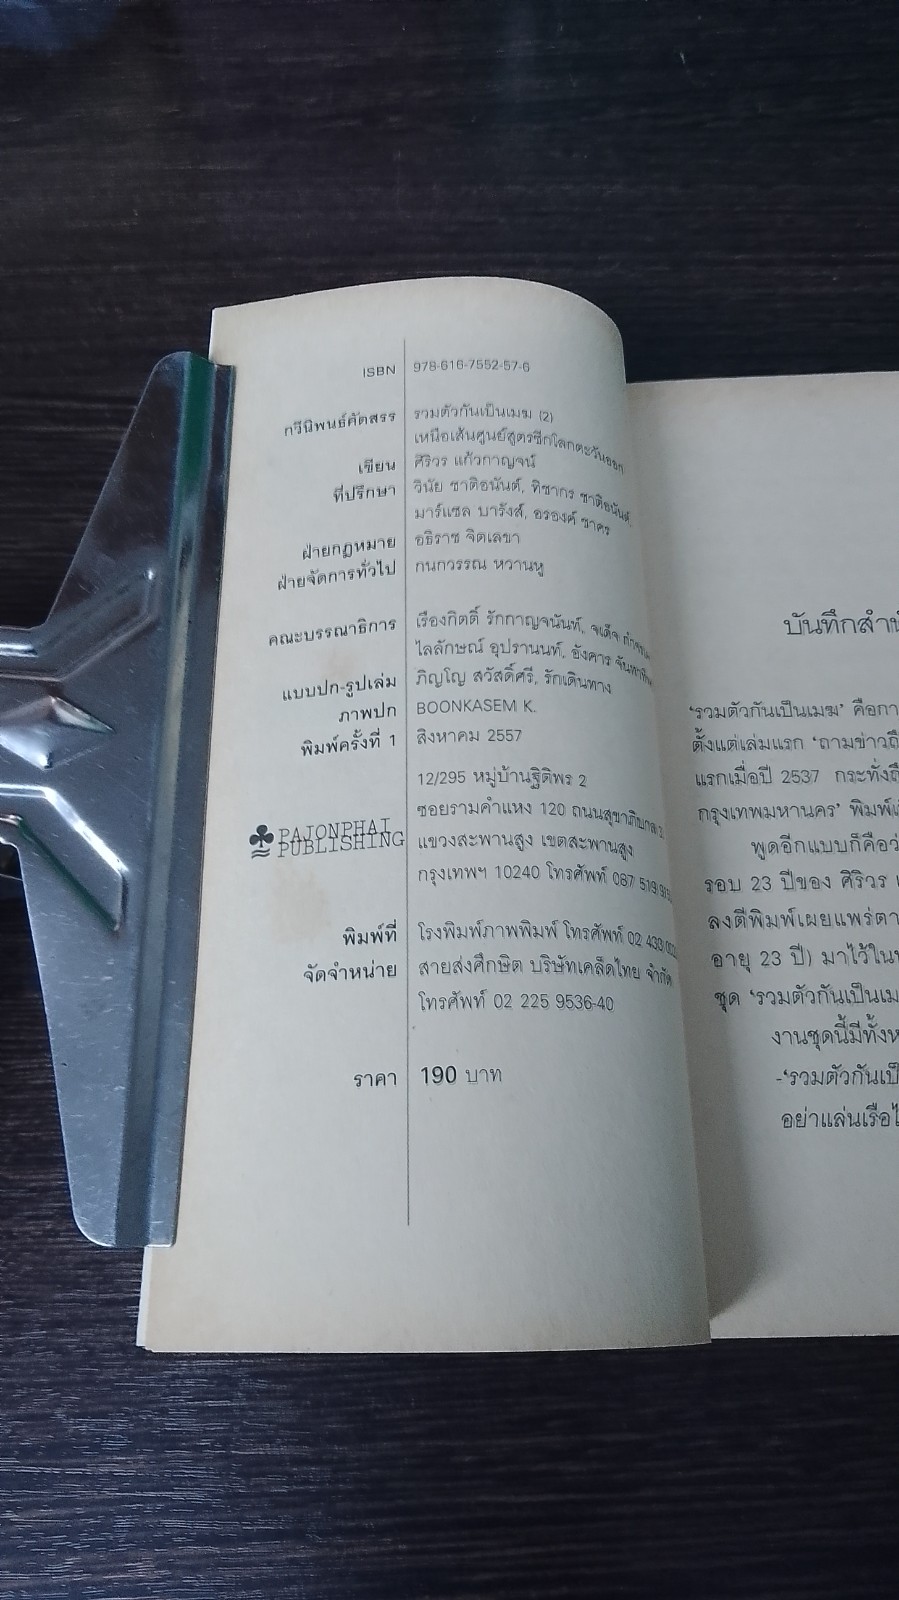 ISBN 978-616-7552-57-6
กวีนิพนธ์คัดสรร รวมตัวกันเป็นเมฆ (2)
เหนือเส้นศูนย์สูตรซีกโลกตะวันออก
เขียน ศิริวร แก้วกาญจน์
ที่ปรึกษา วินัย ชาติอนันต์, ทิชากร ชาติอนันต์,
มาร์แซล บารังส์, อรองค์ ชาคร
ฝ่ายกฎหมาย อธิราช จิตเลขา
ฝ่ายจัดการทั่วไป กนกวรรณ หวานหู
คณะบรรณาธิการ เรืองกิตติ์ รักกาญจนันท์,
ไลลักษณ์ อุปรานนท์, อังคาร
แบบปก-รูปเล่ม ภิญโญ สวัสดิ์ศรี, รักเดินทาง
ภาพปก BOONKASEM K.
พิมพ์ครั้งที่ 1 สิงหาคม 2557
PAJONPHAI
PUBLISHING
12/295 หมู่บ้านฐิติพร 2
ซอยรามคำแหง 120 ถนนสุขาภิบาล
แขวงสะพานสูง เขตสะพานสูง
กรุงเทพฯ 10240 โทรศัพท์ 087 519
พิมพ์ที่ โรงพิมพ์ภาพพิมพ์ โทรศัพท์ 02
จัดจำหน่าย สายส่งศึกษิต บริษัทเคล็ดไทย จำกัด
โทรศัพท์ 02 225 9536-40
ราคา 190 บาท
บันทึกสำ
'รวมตัวกันเป็นเมฆ' คือกา
ตั้งแต่เล่มแรก 'ถามข่าวถึ
แรกเมื่อปี 2537 กระทั่งถึ
กรุงเทพมหานคร' พิมพ์
พูดอีกแบบก็คือว
รอบ 23 ปีของ ศิริวร แ
ลงตีพิมพ์เผยแพร่ตา
อายุ 23 ปี) มาไว้ใน
ชุด 'รวมตัวกันเป็นเม
งานชุดนี้มีทั้งห
-'รวมตัวกันเป็
อย่าแล่นเรือไ